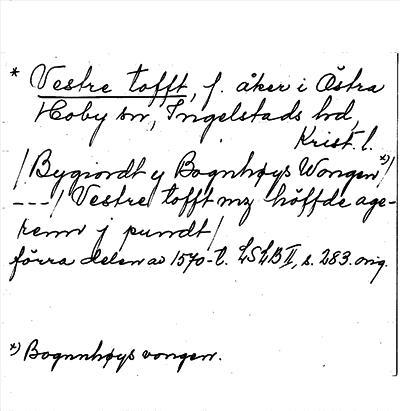 * Vestre tofft, f. åker i Östra
Hoby sn, Ingelstads hd,
Krist. l.
/ Bygiordt y Bognhøys Wongen *)/
---/ Vestre tofft mz höffde age-
renn j pundt /
förra delen av 1570-t. LSLB II, s. 283. orig.
*) Bognnhøys vongen.